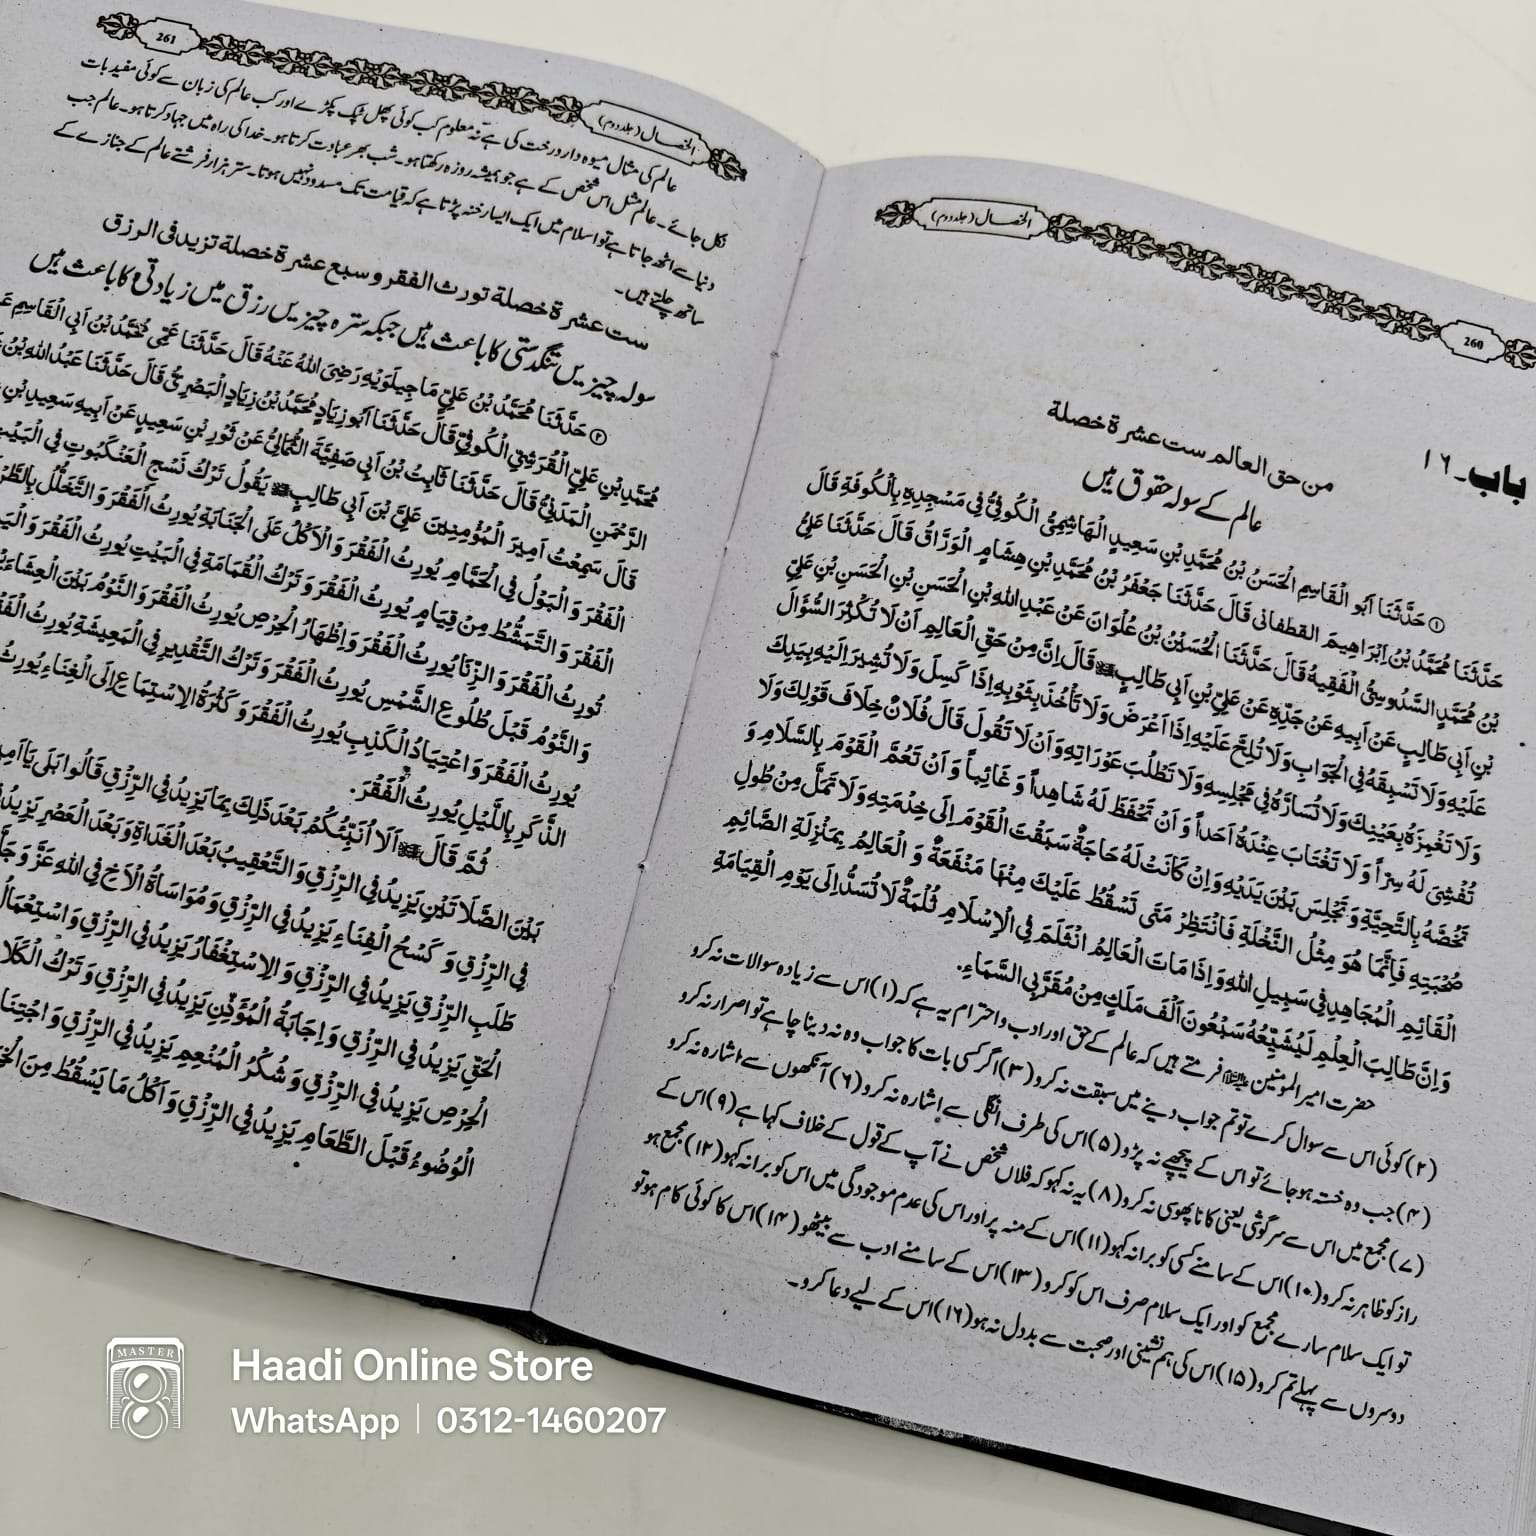 الخصال (جلد دوم)
260
باب۔ ۱۶
من حق العالم ست عشرة خصلة
عالم کے سولہ حقوق ہیں
① حَدَّثَنَا اَبُو الْقَاسِمِ الْحَسَنُ بْنُ مُحَمَّدِ بْنِ سَعِيدٍ الْهَاشِمِيُّ الْكُوفِيُّ فِي مَسْجِدِهِ بِالْكُوفَةِ قَالَ
حَدَّثَنَا مُحَمَّدُ بْنُ اِبْرَاهِيمَ القطفانى قَالَ حَدَّثَنَا جَعْفَرُ بْنُ مُحَمَّدِ بْنِ هِشَامٍ الْوَرَّاقُ قَالَ حَدَّثَنَا عَلِيُّ
بْنُ مُحَمَّدٍ السَّدُوسِيُّ الْفَقِيهُ قَالَ حَدَّثَنَا الْحُسَيْنُ بْنُ عُلْوَانَ عَنْ عَبْدِ اللهِ بْنِ الْحَسَنِ بْنِ الْحَسَنِ بْنِ عَلِيِّ
بْنِ اَبِي طَالِبٍ عَنْ اَبِيهِ عَنْ جَدِّهِ عَنْ عَلِيِّ بْنِ اَبِي طَالِبٍ قَالَ اِنَّ مِنْ حَقِّ الْعَالِمِ اَنْ لَا تُكْثِرَ السُّؤَالَ
عَلَيْهِ وَلَا تَسْبِقَهُ فِي الْجَوَابِ وَلَا تُلِحَّ عَلَيْهِ اِذَا اَعْرَضَ وَلَا تَأْخُذَ بِثَوْبِهِ اِذَا كَسِلَ وَلَا تُشِيرَ اِلَيْهِ بِيَدِكَ
وَلَا تَغْمِزَهُ بِعَيْنِكَ وَلَا تُسَارَّهُ فِي مَجْلِسِهِ وَلَا تَطْلُبَ عَوْرَاتِهِ وَاَنْ لَا تَقُولَ قَالَ فُلَانٌ خِلَافَ قَوْلِكَ وَلَا
تُفْشِيَ لَهُ سِرّاً وَلَا تَغْتَابَ عِنْدَهُ اَحَداً وَ اَنْ تَحْفَظَ لَهُ شَاهِداً وَ غَائِباً وَ اَنْ تَعُمَّ الْقَوْمَ بِالسَّلَامِ وَ
تَخُصَّهُ بِالتَّحِيَّةِ وَ تَجْلِسَ بَيْنَ يَدَيْهِ وَ اِنْ كَانَتْ لَهُ حَاجَةٌ سَبَقْتَ الْقَوْمَ اِلَى خِدْمَتِهِ وَلَا تَمَلَّ مِنْ طُولِ
صُحْبَتِهِ فَاِنَّمَا هُوَ مِثْلُ النَّخْلَةِ فَانْتَظِرْ مَتَى تَسْقُطُ عَلَيْكَ مِنْهَا مَنْفَعَةٌ وَ الْعَالِمُ بِمَنْزِلَةِ الصَّائِمِ
الْقَائِمِ الْمُجَاهِدِ فِي سَبِيلِ اللهِ وَ اِذَا مَاتَ الْعَالِمُ انْثَلَمَ فِي الْاِسْلَامِ ثُلْمَةٌ لَا تُسَدُّ اِلَى يَوْمِ الْقِيَامَةِ
وَ اِنَّ طَالِبَ الْعِلْمِ لَيُشَيِّعُهُ سَبْعُونَ اَلْفَ مَلَكٍ مِنْ مُقَرَّبِي السَّمَاءِ.
حضرت امیر المومنین فرمتے ہیں کہ عالم کے حق اور ادب و احترام یہ ہے کہ (۱) اس سے زیادہ سوالات نہ کرو
(۲) کوئی اس سے سوال کرے تو تم جواب دینے میں سبقت نہ کرو (۳) اگر کسی بات کا جواب وہ نہ دینا چاہے تو اصرار نہ کرو
(۴) جب وہ خستہ ہو جائے تو اس کے پیچھے نہ پڑو (۵) اس کی طرف انگلی سے اشارہ نہ کرو (۶) آنکھوں سے اشارہ نہ کرو
(۷) مجمع میں اس سے سرگوشی یعنی کانا پھوسی نہ کرو (۸) یہ نہ کہو کہ فلاں شخص نے آپ کے قول کے خلاف کہا ہے (۹) اس کے
راز کو ظاہر نہ کرو (۱۰) اس کے سامنے کسی کو برا نہ کہو (۱۱) اس کے منہ پر اور اس کی عدم موجودگی میں اس کو برا نہ کہو (۱۲) مجمع ہو
تو ایک سلام سارے مجمع کو اور ایک سلام صرف اس کو کرو (۱۳) اس کے سامنے ادب سے بیٹھو (۱۴) اس کا کوئی کام ہو تو
دوسروں سے پہلے تم کرو (۱۵) اس کی ہم نشینی اور صحبت سے بددل نہ ہو (۱۶) اس کے لیے دعا کرو۔
الخصال (جلد دوم)
261
عالم کی مثال میوہ دار درخت کی ہے نہ معلوم کب کوئی پھل ٹپک پڑے اور کب عالم کی زبان سے کوئی مفید بات
نکل جائے۔ عالم مثل اس شخص کے ہے جو ہمیشہ روزہ رکھتا ہو۔ شب بھر عبادت کرتا ہو۔ خدا کی راہ میں جہاد کرتا ہو۔ عالم جب
دنیا سے اٹھ جاتا ہے تو اسلام میں ایک ایسا رخنہ پڑتا ہے کہ قیامت تک مسدود نہیں ہوتا۔ ستر ہزار فرشتے عالم کے جنازے کے
ساتھ چلتے ہیں۔
ست عشرة خصلة تورث الفقر و سبع عشرة خصلة تزيد فى الرزق
سولہ چیزیں تنگدستی کا باعث ہیں جبکہ سترہ چیزیں رزق میں زیادتی کا باعث ہیں
② حَدَّثَنَا مُحَمَّدُ بْنُ عَلِيٍّ مَاجِيلَوَيْهِ رَضِيَ اللهُ عَنْهُ قَالَ حَدَّثَنَا عَمِّي مُحَمَّدُ بْنُ اَبِي الْقَاسِمِ
مُحَمَّدِ بْنِ عَلِيٍّ الْقُرَشِيِّ الْكُوفِيِّ قَالَ حَدَّثَنَا اَبُو زِيَادٍ مُحَمَّدُ بْنُ زِيَادٍ الْبَصْرِيُّ قَالَ حَدَّثَنَا عَبْدُ اللهِ بْنُ
الرَّحْمَنِ الْمَدَنِيُّ قَالَ حَدَّثَنَا ثَابِتُ بْنُ اَبِي صَفِيَّةَ الثُّمَالِيُّ عَنْ ثَوْرِ بْنِ سَعِيدٍ عَنْ اَبِيهِ سَعِيدِ بْنِ
قَالَ سَمِعْتُ اَمِيرَ الْمُؤْمِنِينَ عَلِيَّ بْنَ اَبِي طَالِبٍ يَقُولُ تَرْكُ نَسْجِ الْعَنْكَبُوتِ فِي الْبَيْتِ
الْفَقْرَ وَ الْبَوْلُ فِي الْحَمَّامِ يُورِثُ الْفَقْرَ وَ الْاَكْلُ عَلَى الْجَنَابَةِ يُورِثُ الْفَقْرَ وَ التَّخَلُّلُ بِالطَّرْ
الْفَقْرَ وَ التَّمَشُّطُ مِنْ قِيَامٍ يُورِثُ الْفَقْرَ وَ تَرْكُ الْقُمَامَةِ فِي الْبَيْتِ يُورِثُ الْفَقْرَ وَ الْيَمِ
تُورِثُ الْفَقْرَ وَ الزِّنَا يُورِثُ الْفَقْرَ وَ اِظْهَارُ الْحِرْصِ يُورِثُ الْفَقْرَ وَ النَّوْمُ بَيْنَ الْعِشَاءَيْ
وَ النَّوْمُ قَبْلَ طُلُوعِ الشَّمْسِ يُورِثُ الْفَقْرَ وَ تَرْكُ التَّقْدِيرِ فِي الْمَعِيشَةِ يُورِثُ الْفَقْ
يُورِثُ الْفَقْرَ وَ اعْتِيَادُ الْكَذِبِ يُورِثُ الْفَقْرَ وَ كَثْرَةُ الِاسْتِمَاعِ اِلَى الْغِنَاءِ يُورِثُ
الذَّكَرِ بِاللَّيْلِ يُورِثُ الْفَقْرَ.
ثُمَّ قَالَ اَلَا اُنَبِّئُكُمْ بَعْدَ ذَلِكَ بِمَا يَزِيدُ فِي الرِّزْقِ قَالُوا بَلَى يَا اَمِ
بَيْنَ الصَّلَاتَيْنِ يَزِيدُ فِي الرِّزْقِ وَ التَّعْقِيبُ بَعْدَ الْغَدَاةِ وَ بَعْدَ الْعَصْرِ يَزِيدُ
فِي الرِّزْقِ وَ كَسْحُ الْفِنَاءِ يَزِيدُ فِي الرِّزْقِ وَ مُوَاسَاةُ الْاَخِ فِي اللهِ عَزَّ وَ جَ
طَلَبِ الرِّزْقِ يَزِيدُ فِي الرِّزْقِ وَ الِاسْتِغْفَارُ يَزِيدُ فِي الرِّزْقِ وَ اسْتِعْمَالُ
الْحَقِّ يَزِيدُ فِي الرِّزْقِ وَ اِجَابَةُ الْمُؤَذِّنِ يَزِيدُ فِي الرِّزْقِ وَ تَرْكُ الْكَلَا
الْحِرْصِ يَزِيدُ فِي الرِّزْقِ وَ شُكْرُ الْمُنْعِمِ يَزِيدُ فِي الرِّزْقِ وَ اجْتِنَا
الْوُضُوءُ قَبْلَ الطَّعَامِ يَزِيدُ فِي الرِّزْقِ وَ اَكْلُ مَا يَسْقُطُ مِنَ الْخِ
MASTER
Haadi Online Store
WhatsApp | 0312-1460207